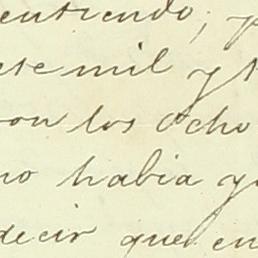 entiendo; p
ete mil y t
con los ocho
no habia y
decir que en